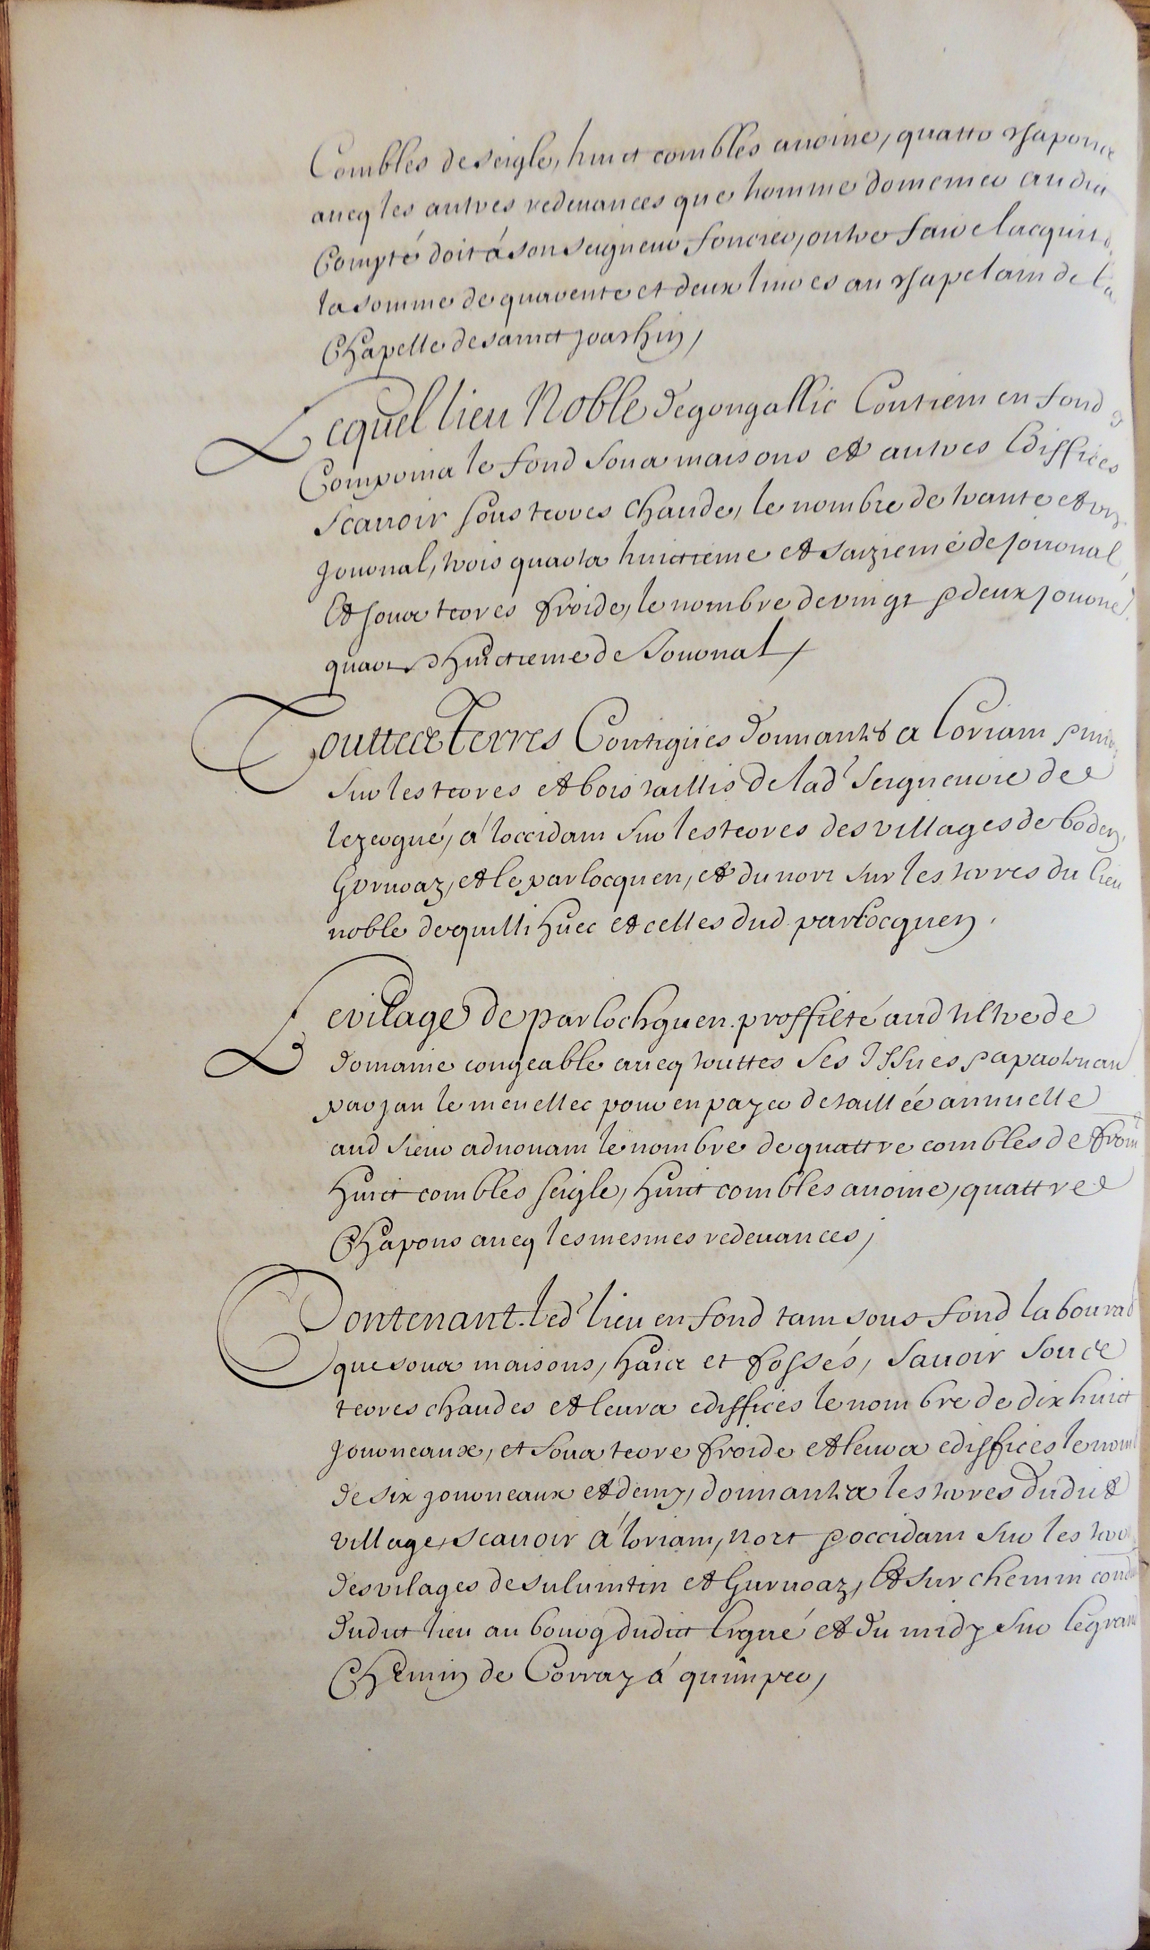 Combles de seigle, huict combles auoine, quattre chapons
aucq les autres redeuances que homme domenier au dict
Compté doit á son seigneur foncier, outre faire lacquict
la somme de quarente et deux liures au chapelain de la
Chapelle de sainct joachin,
Lequel lieu Noble de gongallic Contient en fond
Comprins le fond soubz maisons et autres Ediffices
Scauoir soubs terres chaude, le nombre de trante et un
journal, trois quartz huictieme et saizieme de journal
Et soubz terres froide, le nombre de vingt & deux journe
quart & huictieme de Journal,
Touttes Terres Contigües donnantes a Loriant
Sur les terres et bois taillis de lad Seigneurie de
lezergué, á loccidant Sur les terres des villages de boden,
Guruoaz, et le parlocquen, et du nort Sur les terres du lieu
noble de quillihuec et celles dud parlocquen.
Le vilage de parlochquen proffitté aud tiltre de
domaine congeable aucq touttes Ses Issues & apartenan
par jan le menellec pour en payer de taillée annuelle
aud Sieur aduouant le nombre de quattre combles de from
huict combles seigle, huict combles auoine, quattre
Chapons aucq les mesmes redeuances,
Contenant led lieu en fond tant sous fond labourab
que soubz maisons, haies et fossés, Sauoir Soubz
terres chaudes et leurs ediffices le nombre de dix huict
journeaux, et Soubz terre froide et leurs ediffices le nomb
de six journeaux et demy, donnantes les terres dudict
village, scauoir á loriant, nort & occidant Sur les terres
des vilages de suluintin et Guruoaz, Et Sur chemin cond
dudict lieu au bourg dudict Ergué et du midy Sur le grand
Chemin de Corray á quimper,